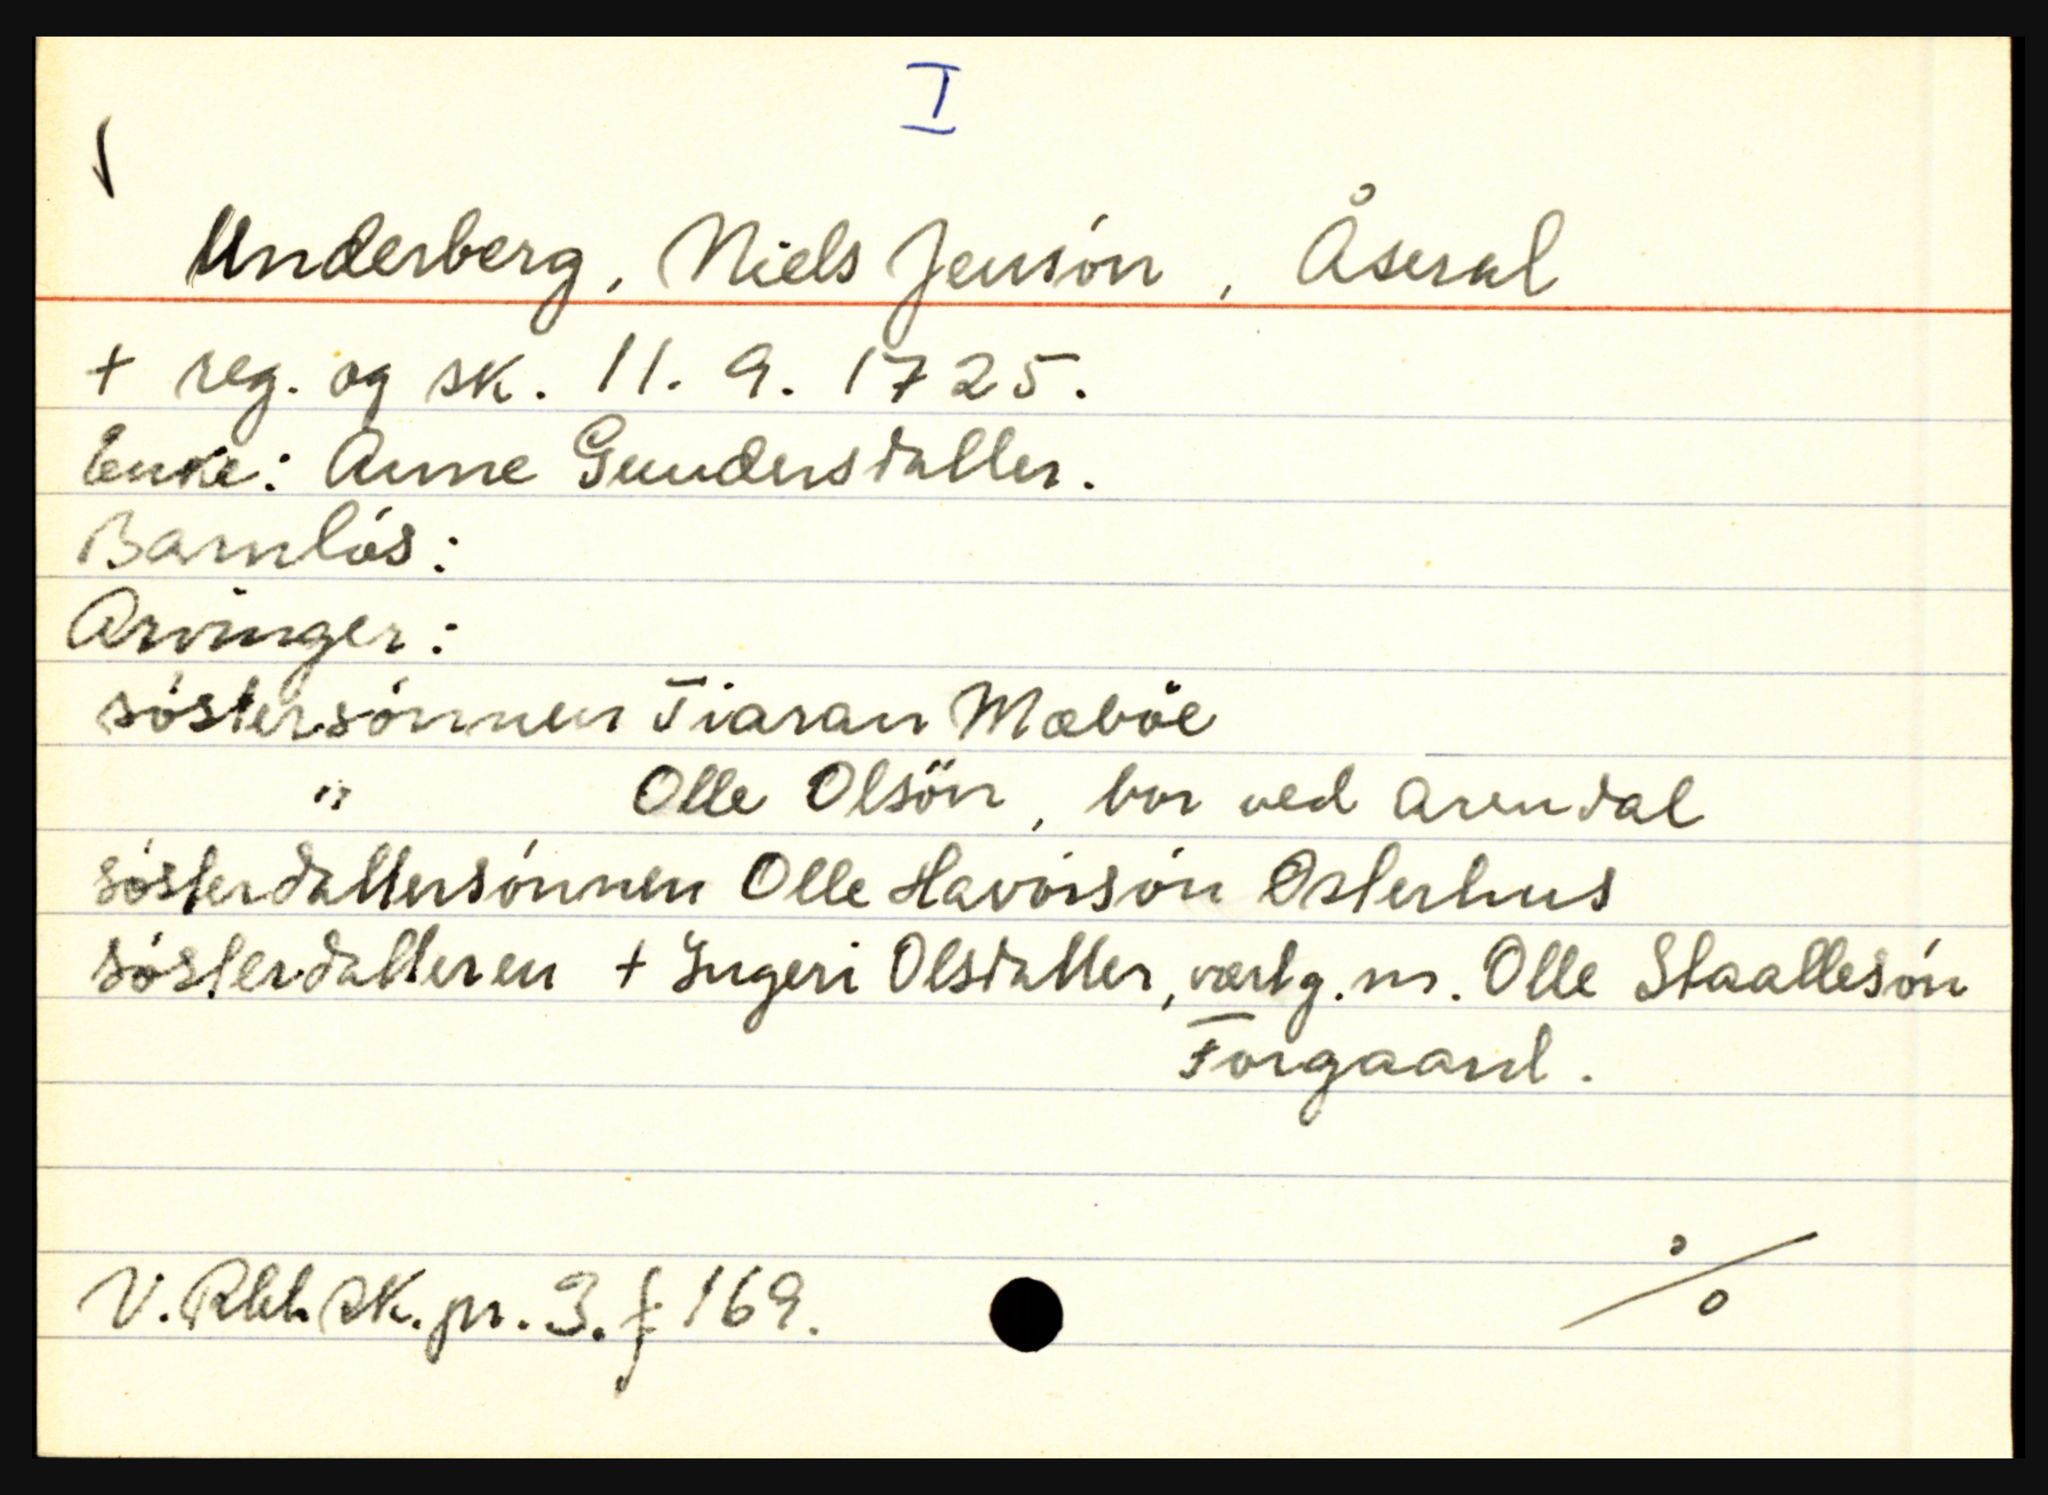 I
Underberg, Niels Jensón, Åseral
+ reg. og sk. 11. 9. 1725.
Enke: Anne Gundersdatter.
Barnlós:
Arvinger:
söstersónnen Tiaran Mæböe
" Olle Olsön, bor ved Arendal
sósterdattersónnen Olle Havórsón Osterhus
sósterdatteren + Ingeri Olsdatter, værtg. m. Olle Staallesón
Forgaard.
V. Rbh sk. pr. 3. f 169.
%